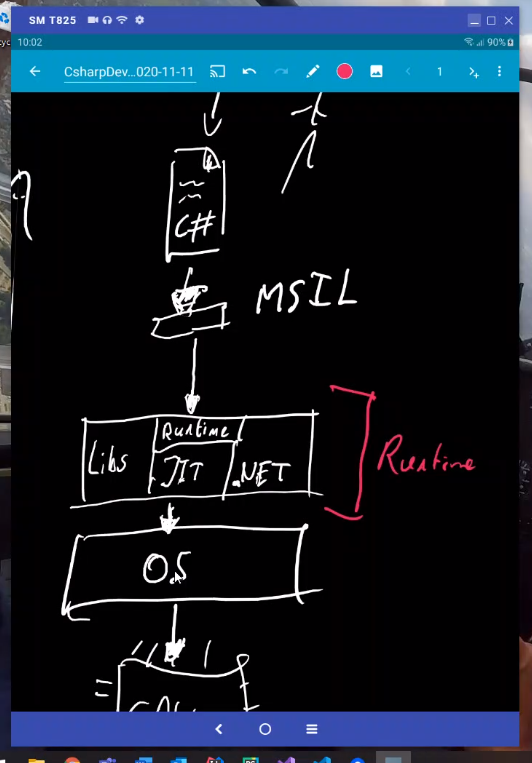 SM T825
10:02
90%
CsharpDev...020-11-11
1
C#
MSIL
Runtime
Libs
JIT
.NET
Runtime
O.S